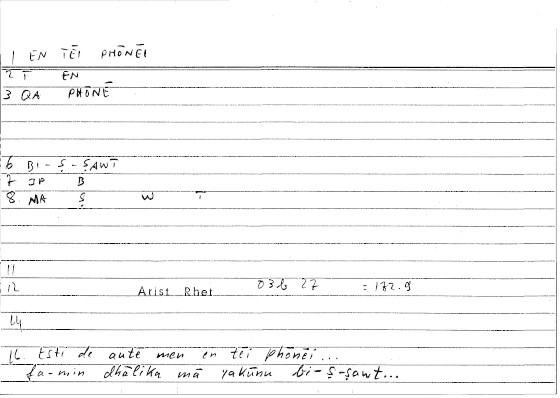 1 EN TĒI PHŌNĒI
2 T EN
3 QA PHŌNĒ
6 BI-Ṣ-ṢAWT
7 JP B
8 MA Ṣ W T
11
12 Arist Rhet 03b 27 = 172.9
14
16 Esti de autē men en tēi phōnēi...
fa-min dhālika mā yakūnu bi-ṣ-ṣawt...